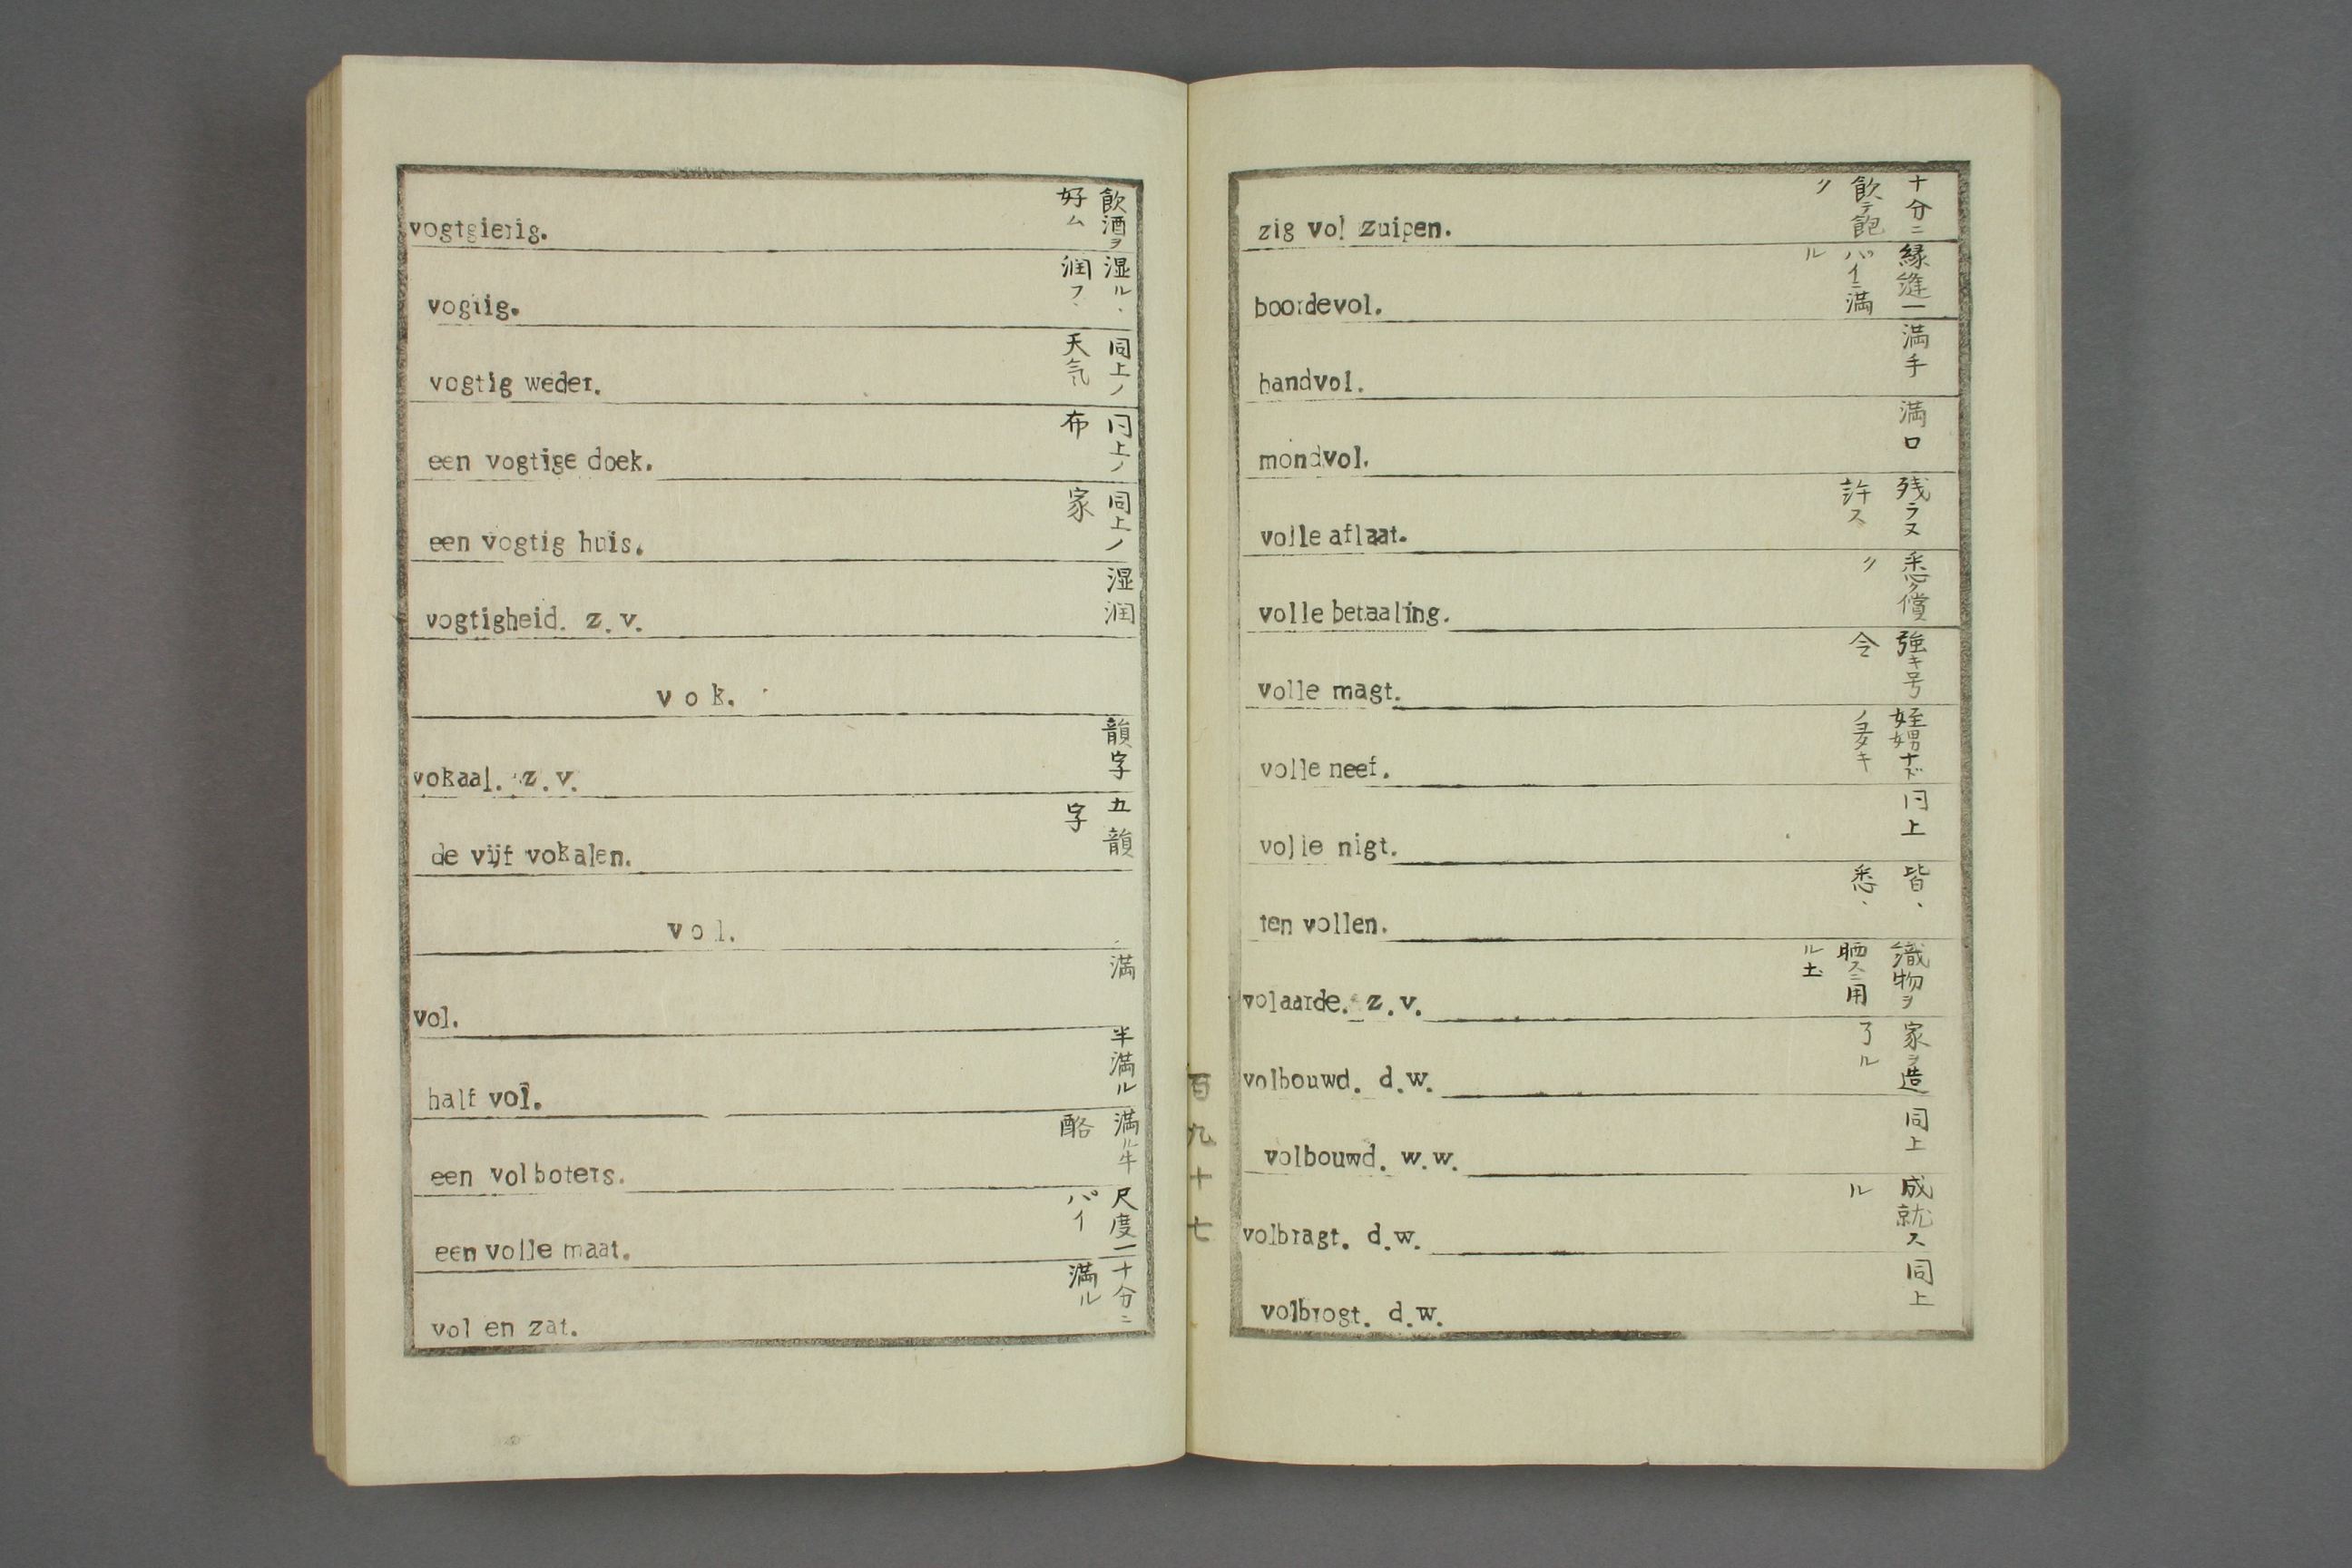 vogtgierig. 飲酒ヲ好ム
vogtig. 湿ル、潤フ、
vogtig weder. 同上ノ天気
een vogtige doek. 同上ノ布
een vogtig huis. 同上ノ家
vogtigheid. z. v. 湿潤
vok.
vokaal. z. v. 韻字
de vijf vokalen. 五韻字
vol.
vol. 満
half vol. 半満ル
een vol boters. 満ル牛酪
een volle maat. 尺度一パイ
vol en zat. 十分ニ満ル
zig vol zuipen. 十分ニ飲テ飽ク
boordevol. 縁縫一パイニ満ル
handvol. 満手
mondvol. 満口
volle aflaat. 残ラヌ許ス
volle betaaling. 悉ク償ク
volle magt. 強キ号令
volle neef. 姪甥ナド
volle nigt. 同上
ten vollen. 皆、悉、
volaarde. z. v. 織物ヲ晒スニ用ル土
volbouwd. d. w. 家ヲ造了ル
volbouwd. w. w. 同上
volbragt. d. w. 成就スル
volbrogt. d. w. 同上
百九十七